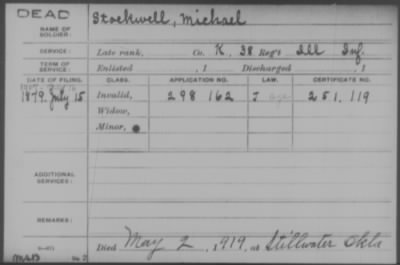 DEAD
NAME OF SOLDIER: Stockwell, Michael
SERVICE: Late rank, Co. K, 38 Reg't Ill Inf.
TERM OF SERVICE: Enlisted , 1 Discharged , 1
DATE OF FILING. CLASS. APPLICATION NO. LAW. CERTIFICATE NO.
1879. July 15 Invalid, 298 162 251.119
Widow,
Minor,
ADDITIONAL SERVICES:
REMARKS:
Died May 2, 1919, at Stillwater Okla